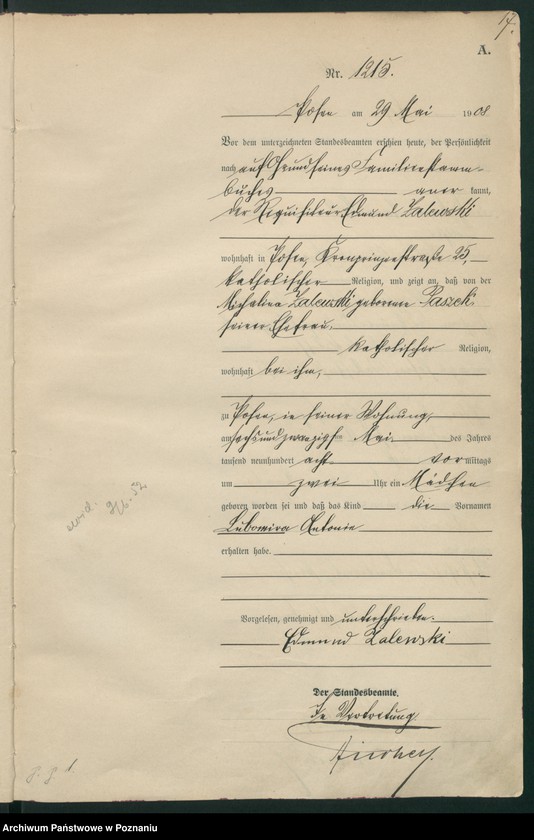 17.
A.
Nr. 1215.
Posen am 29 Mai 1908
Vor dem unterzeichneten Standesbeamten erschien heute, der Persönlichkeit
nach auf Grund seines Familienstamm-
buches anerkannt,
der Requisiteur Edmund Zalewski
wohnhaft in Posen, Kronprinzenstraße 25,
katholischer Religion, und zeigt an, daß von der
Michalina Zalewski geborenen Paszek,
seiner Ehefrau,
katholischer Religion,
wohnhaft bei ihm,
zu Posen, in seiner Wohnung,
am sechsundzwanzigsten Mai des Jahres
tausend neunhundert acht vormittags
um zwei Uhr ein Mädchen
geboren worden sei und daß das Kind die Vornamen
Lubomira Antonie
erhalten habe.
Vorgelesen, genehmigt und unterschrieben.
Edmund Zalewski
Der Standesbeamte.
In Vertretung
Archiwum Państwowe w Poznaniu